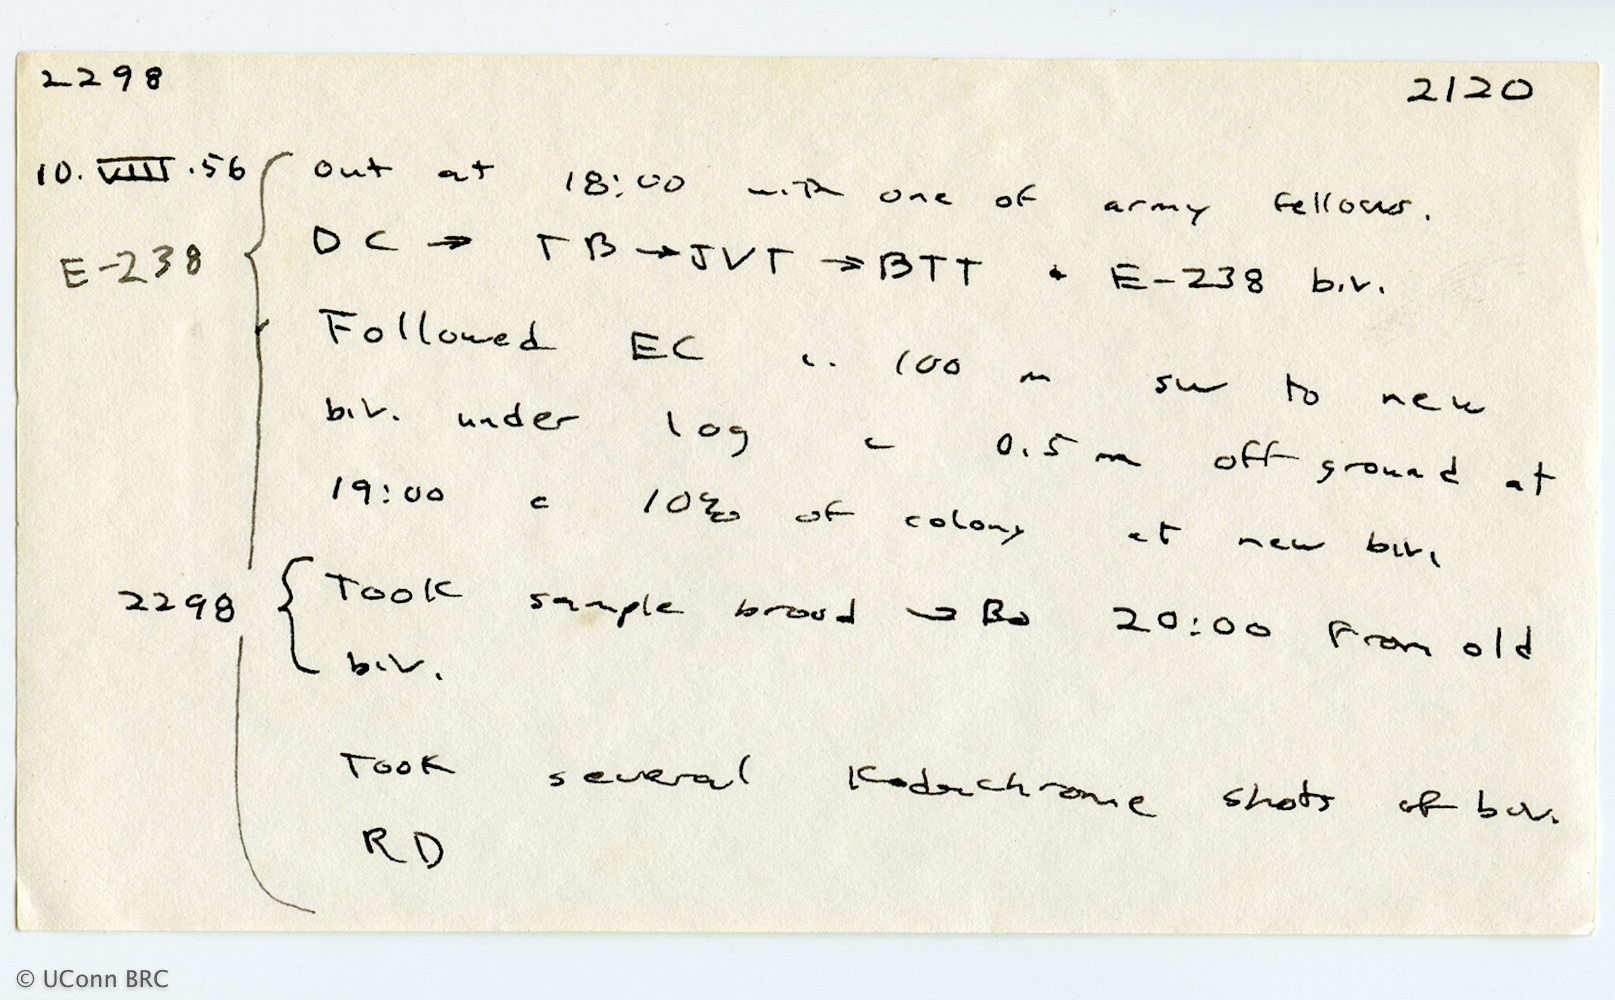 2298 2120
10.VIII.56 Out at 18:00 with one of army fellows.
E-238 DC → TB → JVT → BTT + E-238 biv.
Followed EC c. 100 m SW to new
biv. under log c 0.5 m off ground at
19:00 c 10% of colony at new biv.
2298 Took sample brood → Bo 20:00 From old
biv.
Took several Kodachrome shots of biv.
RD
© UConn BRC